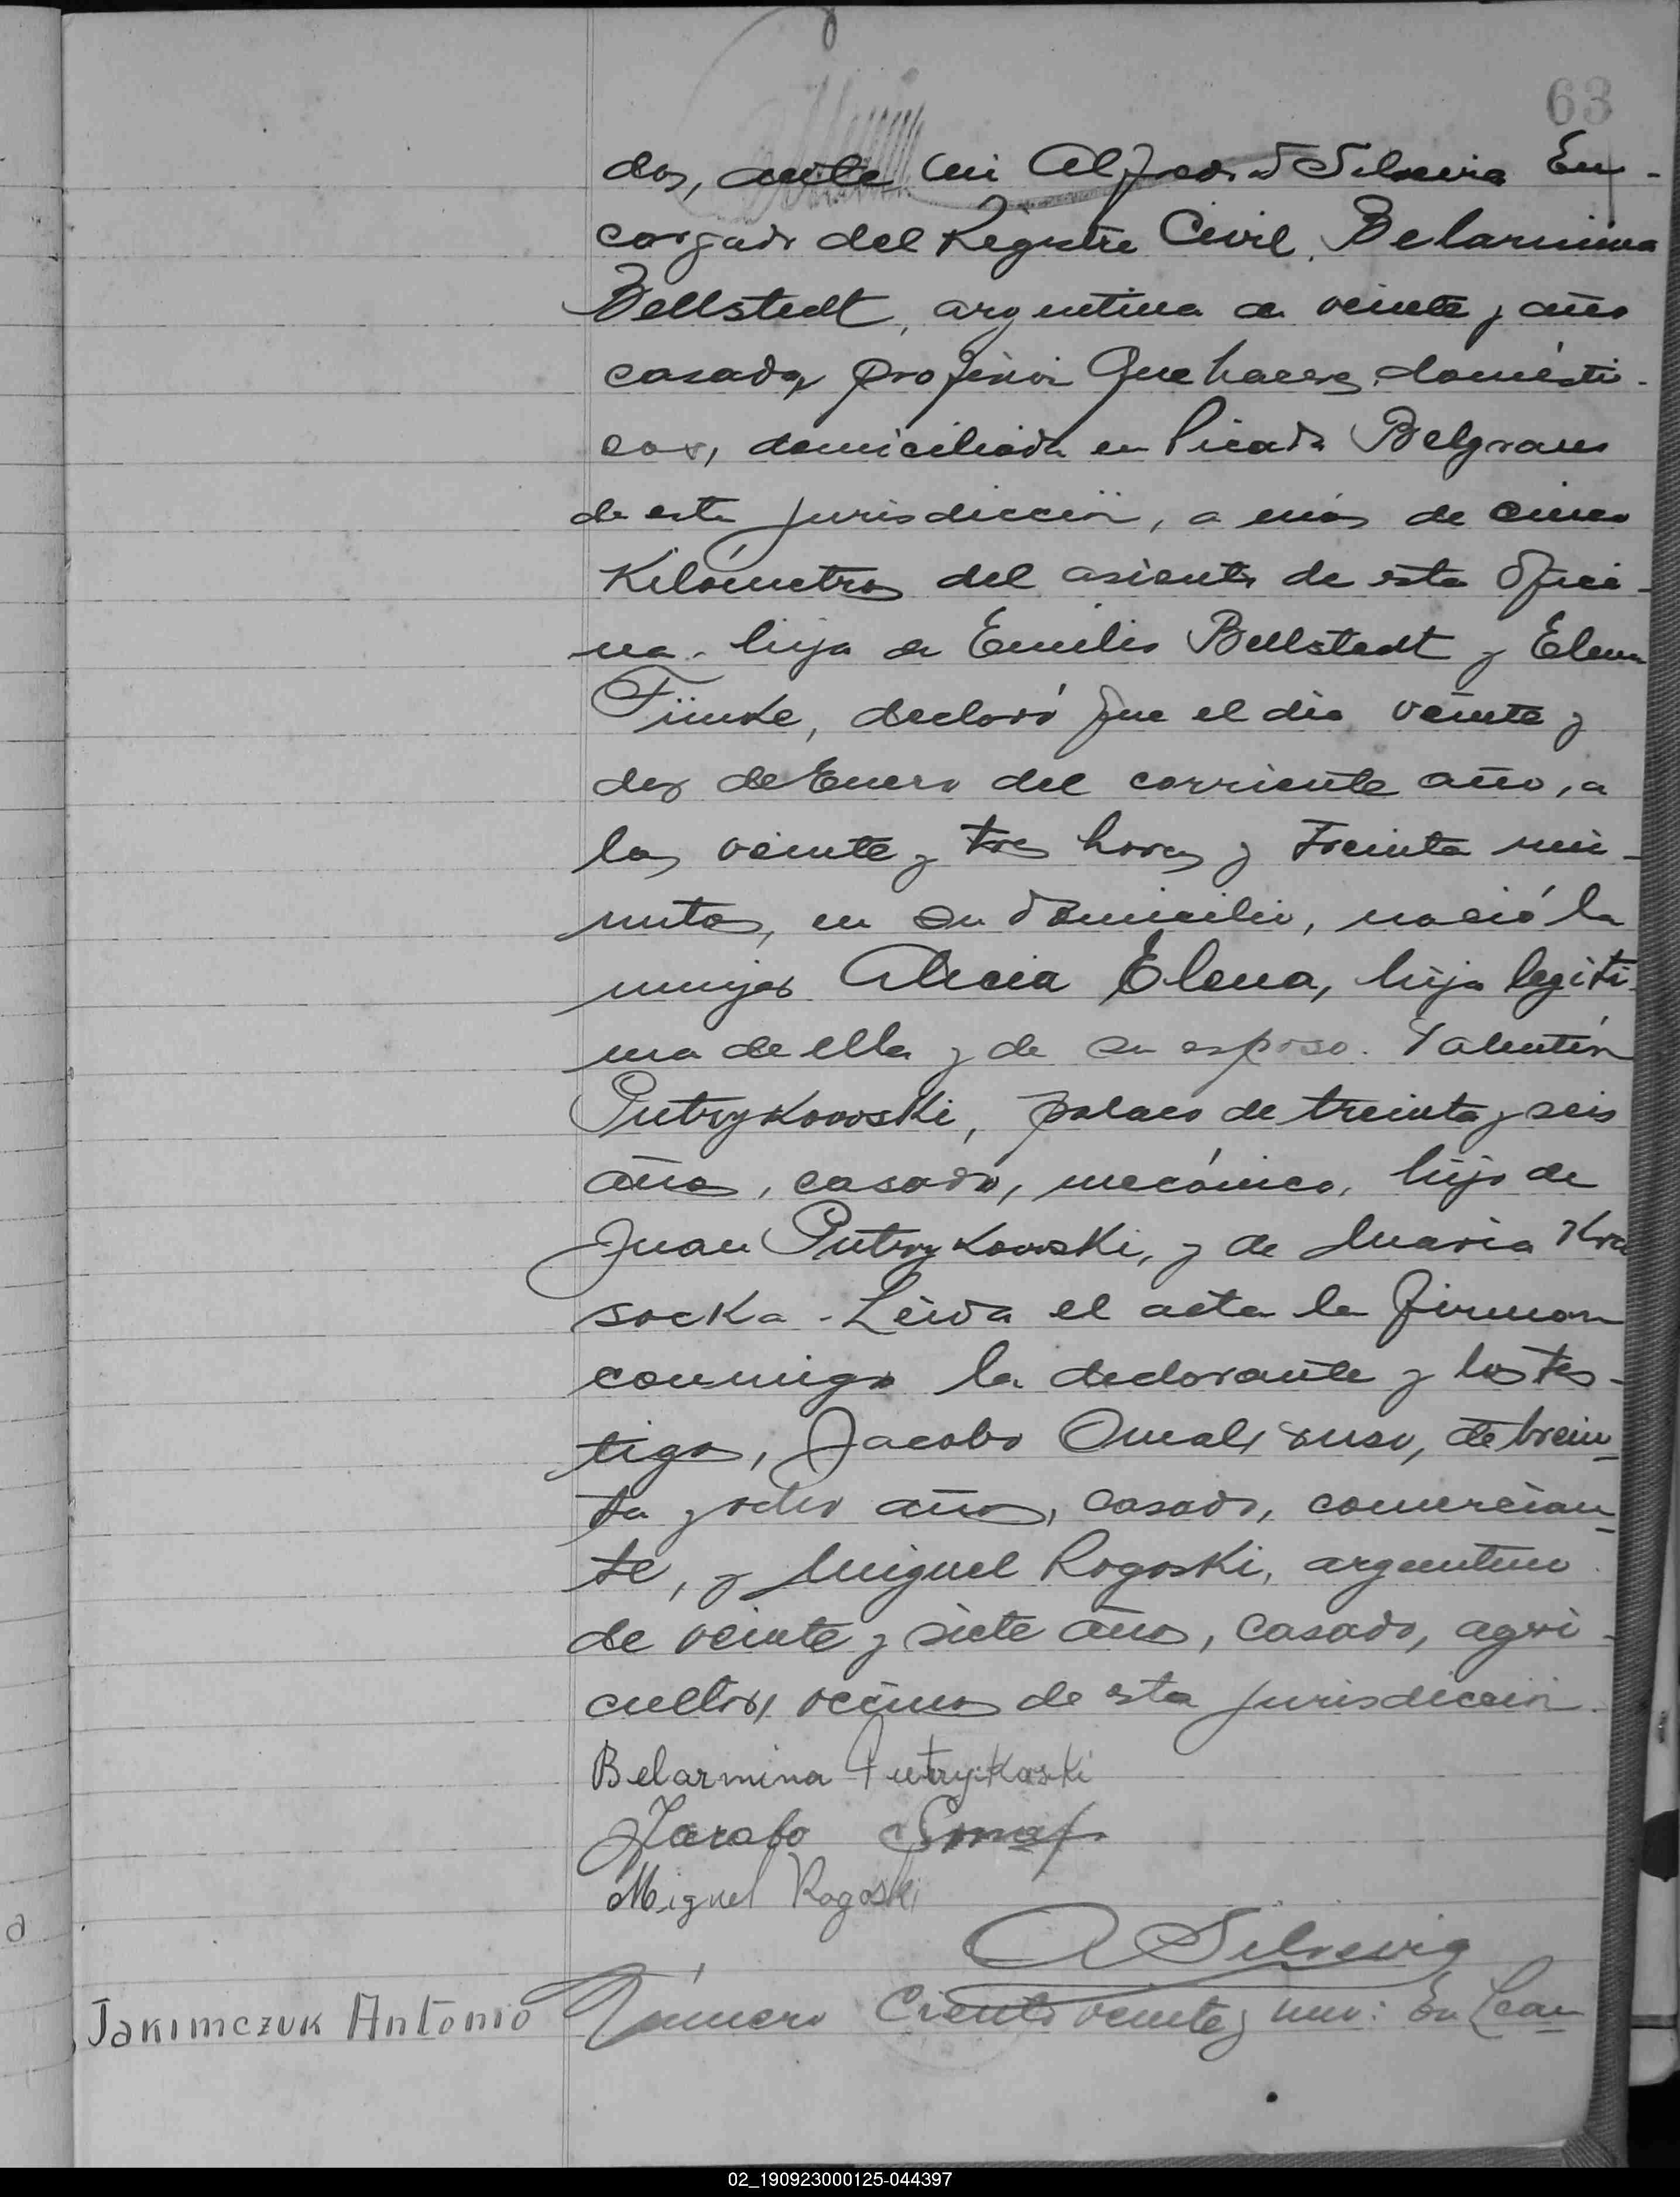 63
dos, ante mi Alfredo Silveira En-
cargado del Registro Civil, Belarmina
Bellstedt, argentina de veinte y años
casada, profesion Quehaceres domesti-
cos, domiciliada en Picada Belgrano
de esta jurisdicción, a más de cinco
Kilómetros del asiento de esta Ofici-
na. hija de Emilio Bellstedt y Elena
Fünke, declaró que el dia veinte y
dos de Enero del corriente año, a
las veinte y tres horas y treinta mi-
nutos, en su domicilio, nació la
mujer Alicia Elena, hija legiti-
ma de ella y de su esposo. Valentín
Putrykowski, polaco de treinta y seis
años, casado, mecánico, hijo de
Juan Putrykowski, y de Maria Kra
socka - Leida el acta la firman
conmigo la declarante y los tes-
tigos, Jacobo Omal, ruso, de trein-
ta y ocho años, casado, comercian-
te, y Miguel Rogoski, argentino
de veinte y siete años, casado, agri-
cultor, vecinos de esta jurisdiccion.
Belarmina Putrykoski
Miguel Rogoski
A Silveira
Jakimczuk Antonio
Número Ciento veinte y uno: En Lean-
02_190923000125-044397